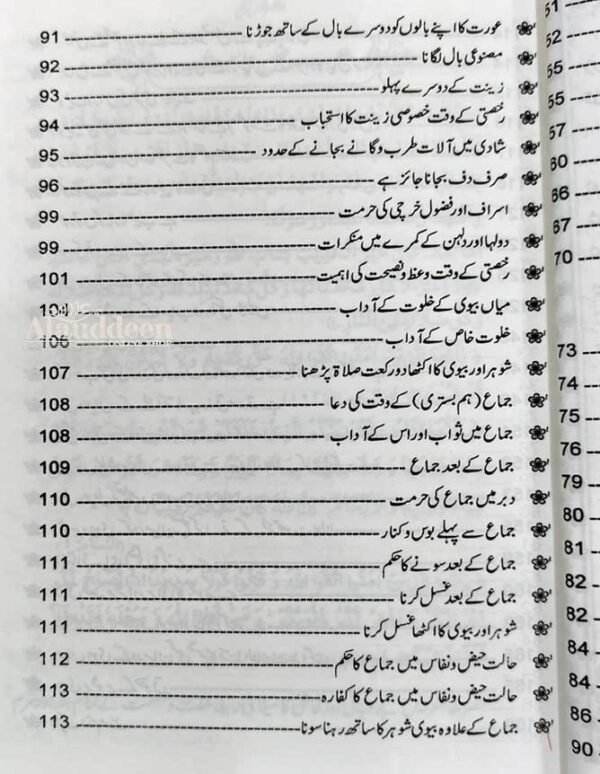 عورت کا اپنے بالوں کو دوسرے بال کے ساتھ جوڑنا 91
مصنوعی بال لگانا 92
زینت کے دوسرے پہلو 93
رخصتی کے وقت خصوصی زینت کا استحباب 94
شادی میں آلات طرب و گانے بجانے کے حدود 95
صرف دف بجانا جائز ہے 96
اسراف اور فضول خرچی کی حرمت 99
دولہا اور دلہن کے کمرے میں منکرات 99
رخصتی کے وقت وعظ و نصیحت کی اہمیت 101
میاں بیوی کے خلوت کے آداب 104
خلوت خاص کے آداب 106
شوہر اور بیوی کا اکٹھا دو رکعت صلاۃ پڑھنا 107
جماع (ہم بستری) کے وقت کی دعا 108
جماع میں ثواب اور اس کے آداب 108
جماع کے بعد جماع 109
دبر میں جماع کی حرمت 110
جماع سے پہلے بوس و کنار 110
جماع کے بعد سونے کا حکم 111
جماع کے بعد غسل کرنا 111
شوہر اور بیوی کا اکٹھا غسل کرنا 111
حالت حیض و نفاس میں جماع کا حکم 112
حالت حیض و نفاس میں جماع کا کفارہ 113
جماع کے علاوہ بیوی شوہر کا ساتھ رہنا سونا 113
Alauddeen
51
52
55
55
57
60
66
67
70
73
74
75
76
79
80
81
82
82
84
84
86
90